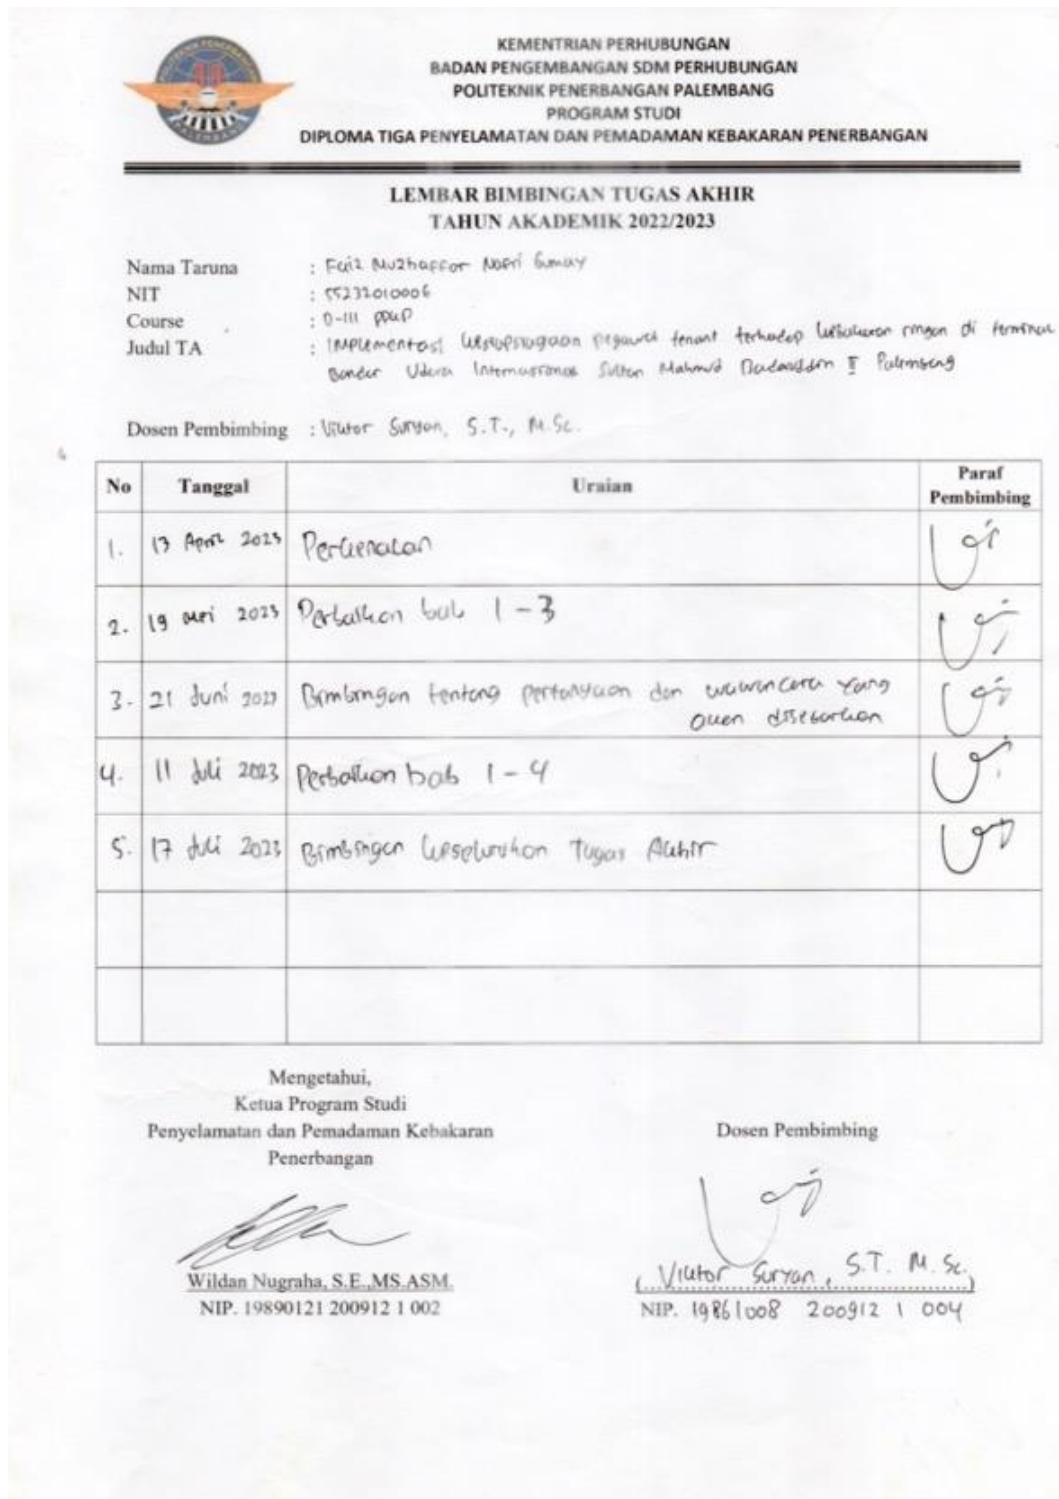 KEMENTRIAN PERHUBUNGAN
BADAN PENGEMBANGAN SDM PERHUBUNGAN
POLITEKNIK PENERBANGAN PALEMBANG
PROGRAM STUDI
DIPLOMA TIGA PENYELAMATAN DAN PEMADAMAN KEBAKARAN PENERBANGAN
LEMBAR BIMBINGAN TUGAS AKHIR
TAHUN AKADEMIK 2022/2023
Nama Taruna : Faiz Muzhaffar Nopri Gumay
NIT : 55232010006
Course : D-III PPKP
Judul TA : Implementasi kesiapsiagaan pegawai tenant terhadap kebakaran ringan di terminal
Bandar Udara Internasional Sultan Mahmud Badaruddin II Palembang
Dosen Pembimbing : Viktor Suryan, S.T., M.Sc.
No Tanggal Uraian Paraf Pembimbing
1. 13 April 2023 Perkenalan
2. 19 Mei 2023 Perbaikan bab 1 - 3
3. 21 Juni 2023 Bimbingan tentang pertanyaan dan wawancara yang
akan disebarkan
4. 11 Juli 2023 Perbaikan bab 1 - 4
5. 17 Juli 2023 Bimbingan keseluruhan Tugas Akhir
Mengetahui,
Ketua Program Studi
Penyelamatan dan Pemadaman Kebakaran
Penerbangan
Wildan Nugraha, S.E.,MS.ASM.
NIP. 19890121 200912 1 002
Dosen Pembimbing
(Viktor Suryan, S.T. M.Sc.)
NIP. 19861008 200912 1 004